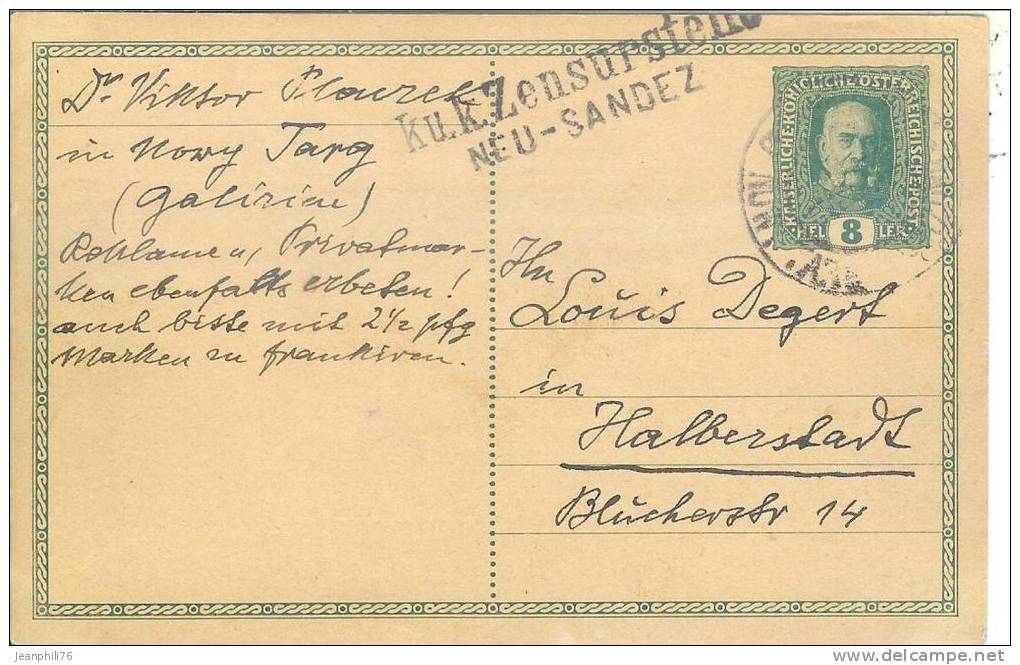 Dr Viktor
in Nowy Targ
(Galizien)
Reklame u, Privatmar-
ken ebenfalls erbeten!
auch bitte mit 2½ pfg
Marken zu frankiren.
k.u.k. Zensurstelle
NEU-SANDEZ
KAISERLICHE KÖNIGLICHE ÖSTERREICHISCHE POST
HEL 8 LER
Hn
Louis Degert
in
Halberstadt
Blücherstr 14
jeanphili76
delcampe.net